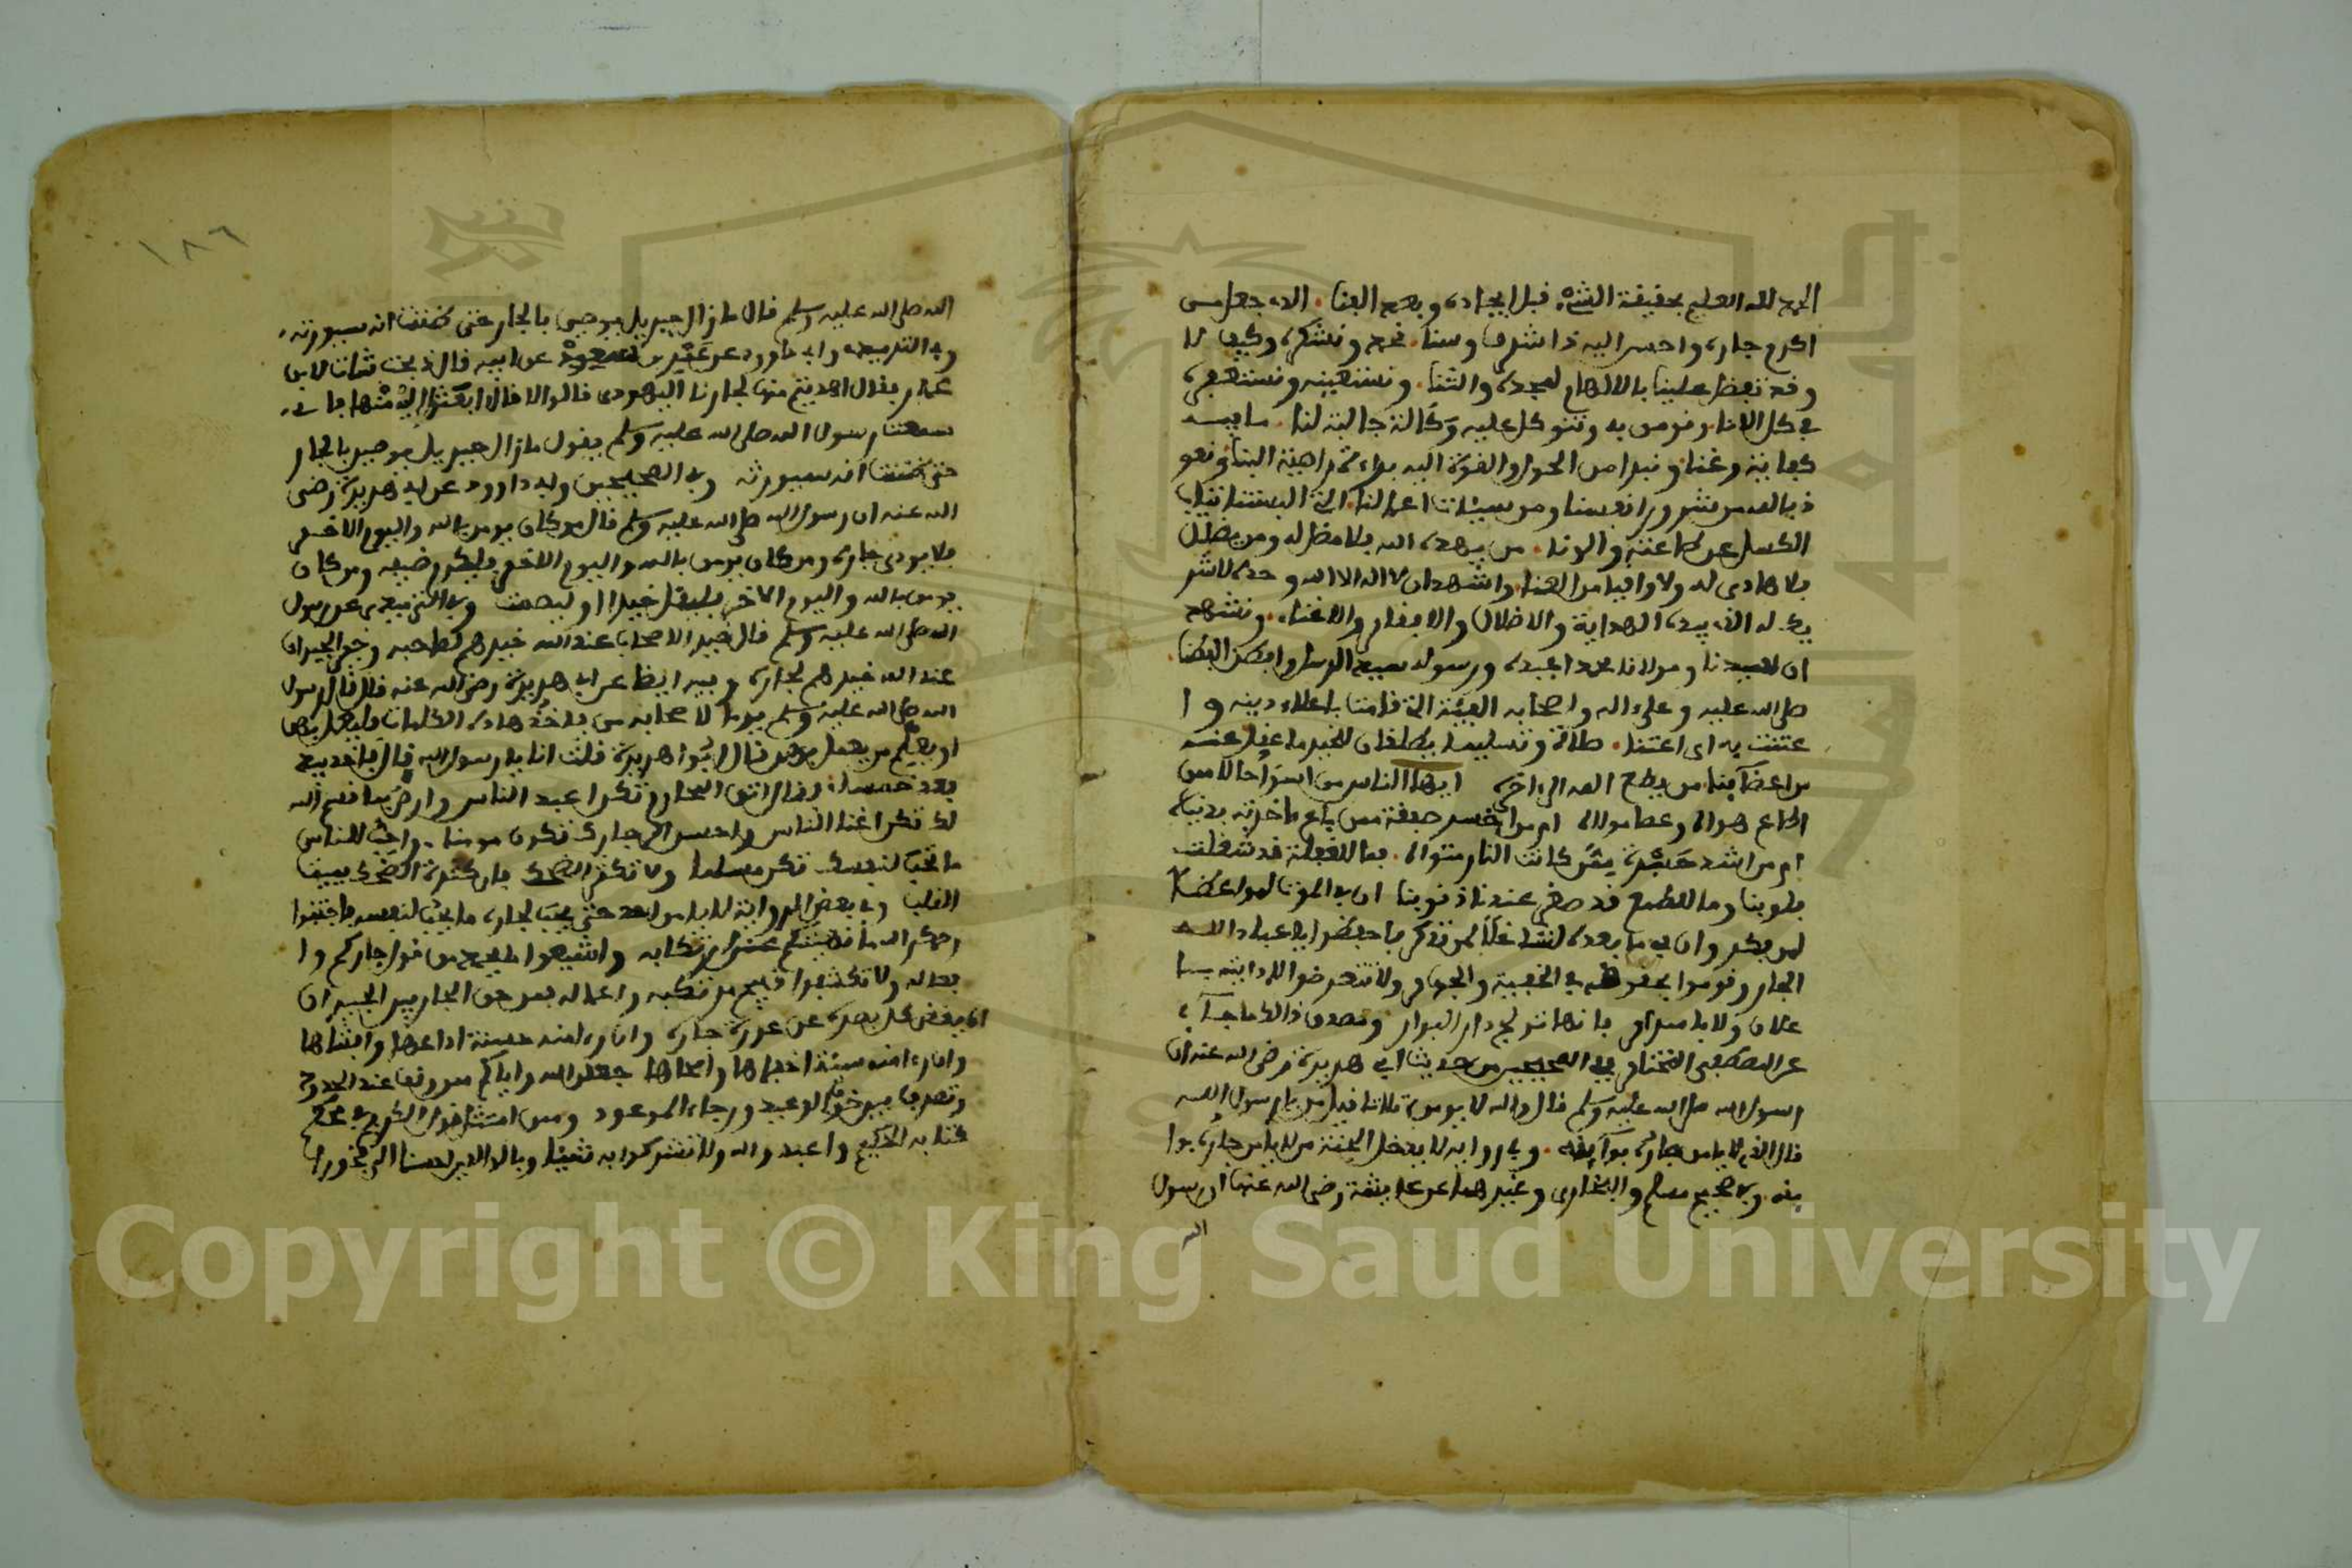 الحمد لله العليم بحقيقة الشيء قبل ايجاده وبعد الفنا. الذي جعل من
اكرم جاره واحسن اليه ذا شرف وسنا. نحمده ونشكره وكيف لا
وقد تفضل علينا بالالهام لحمده والثنا. ونستعينه ونستغفره
في كل الانا ونومن به ونتوكل عليه وكالة جالبة لنا. ما فيه
كفاية وغنا ونبرا من الحول والقوة اليه براءة البنا ونعو
ذ بالله من شرور انفسنا ومن سيئات اعمالنا التي
الكسل عن طاعته والونا. من يهده الله فلا مضل له ومن يضلل
فلا هادي له ولا واقيا من العنا. واشهد ان لا اله الا الله وحده لا شر
يك له الذي بيده الهداية والاضلال والافقار والاغناء. ونشهد
ان سيدنا ومولانا محمدا عبده ورسوله سيد الرسل وافضل
صلى الله عليه وعلى اله واصحابه الفئة التي قامت باعلاء دينه وا
عتنت به اي اعتنا. صلاة وتسليما
من يطع الله الى اخره ايها الناس من اسوا حالا ممن
اطاع هواه وعصا مولاه ام من اخسر صفقة ممن باع ءاخرته بدنياه
ام من اشد حسرة ممن كانت النار مثواه. فما للغفلة قد شملت
قلوبنا وما للطمع قد صغر عندنا ذنوبنا ان في الموت لمواعظا
لمن يفكر وان في ما بعده لشاغلا لمن تذكر فاحفظوا يا عباد الله
الجار وقوموا بحقوقه في الخفية والجهار ولا تتعرضوا لاذايته بـ
علان ولا باسرار فانها تولج دار البوار ومصدق ذالك ما جاء
عن المصطفى المختار ففي الصحيحين من حديث ابي هريرة رضي الله عنه ان
رسول الله صلى الله عليه وسلم قال والله لا يومن ثلاثا قيل من يا رسول الله
قال الذي لا يامن جاره بوايقه. وفي رواية لا يدخل الجنة من لا يامن جاره بوا
يقه. وفي صحيح مسلم والبخاري وغيرهما عن عايشة رضي الله عنها ان رسول
الله
١٨٦
الله صلى الله عليه وسلم قال ما زال جبريل يوصيني بالجار حتى ظننت انه سيورثه.
وفي الترمذي وابي داوود عن عن ابيه قال ذبحت شات لابن
عمر فقال اهديتم منها لجارنا اليهودي قالوا لا قال ابعثوا اليه منها فاني
سمعت رسول الله صلى الله عليه وسلم يقول ما زال جبريل يوصيني بالجار
حتى ظننت انه سيورثه وفي الصحيحين وابي داوود عن ابي هريرة رضي
الله عنه ان رسول الله صلى الله عليه وسلم قال من كان يومن بالله واليوم الاخر
فلا يوذي جاره ومن كان يومن بالله واليوم الاخر فليكرم ضيفه ومن كان
يومن بالله واليوم الاخر فليقل خيرا او ليصمت وفي الترميذي عن رسول
الله صلى الله عليه وسلم قال خير الاصحاب عند الله خيرهم لصاحبه وخير الجيران
عند الله خيرهم لجاره وفيه ايضا عن ابي هريرة رضي الله عنه قال قال رسول
الله صلى الله عليه وسلم يوما لاصحابه من ياخذ هاذه الكلمات فيعمل بهن
او يعلم من يعمل بهن قال ابوا هريرة قلت انا يا رسول الله قال فاخذ بيدي
فعد خمسا. وقال اتق المحارم تكن اعبد الناس وارض بما قسم الله
لك تكن اغنا الناس واحسن الى جارك تكون مومنا. واحب للناس
ما تحب لنفسك تكن مسلما ولا تكثر الضحك فان كثرة الضحك تميت
القلب وفي بعض الرواية لا يامن احد حتى يحب لجاره ما يحب لنفسه فاجتنبوا
رحمكم الله ما نهيتم عن ارتكابه واشيعوا المليح من قول جاركم وا
فعاله ولا تكشفوا قبيح مرتكبه واعماله فمن حق الجار بين الجيران
ان يغض كل بصره عن عورة جاره وان رءا منه حسنة اذاعها وافشاها
وان رءا منه سيئة اخفاها وامحاها جعلنا الله واياكم ممن وقف عند الحدود
وتصرف بين خوف الوعيد ورجاء الموعود وممن امتثل قول الكريم في محكم
كتابه الحكيم واعبدوا الله ولا تشركوا به شيئا وبالوالدين احسنا الى فخورا
Copyright © King Saud University